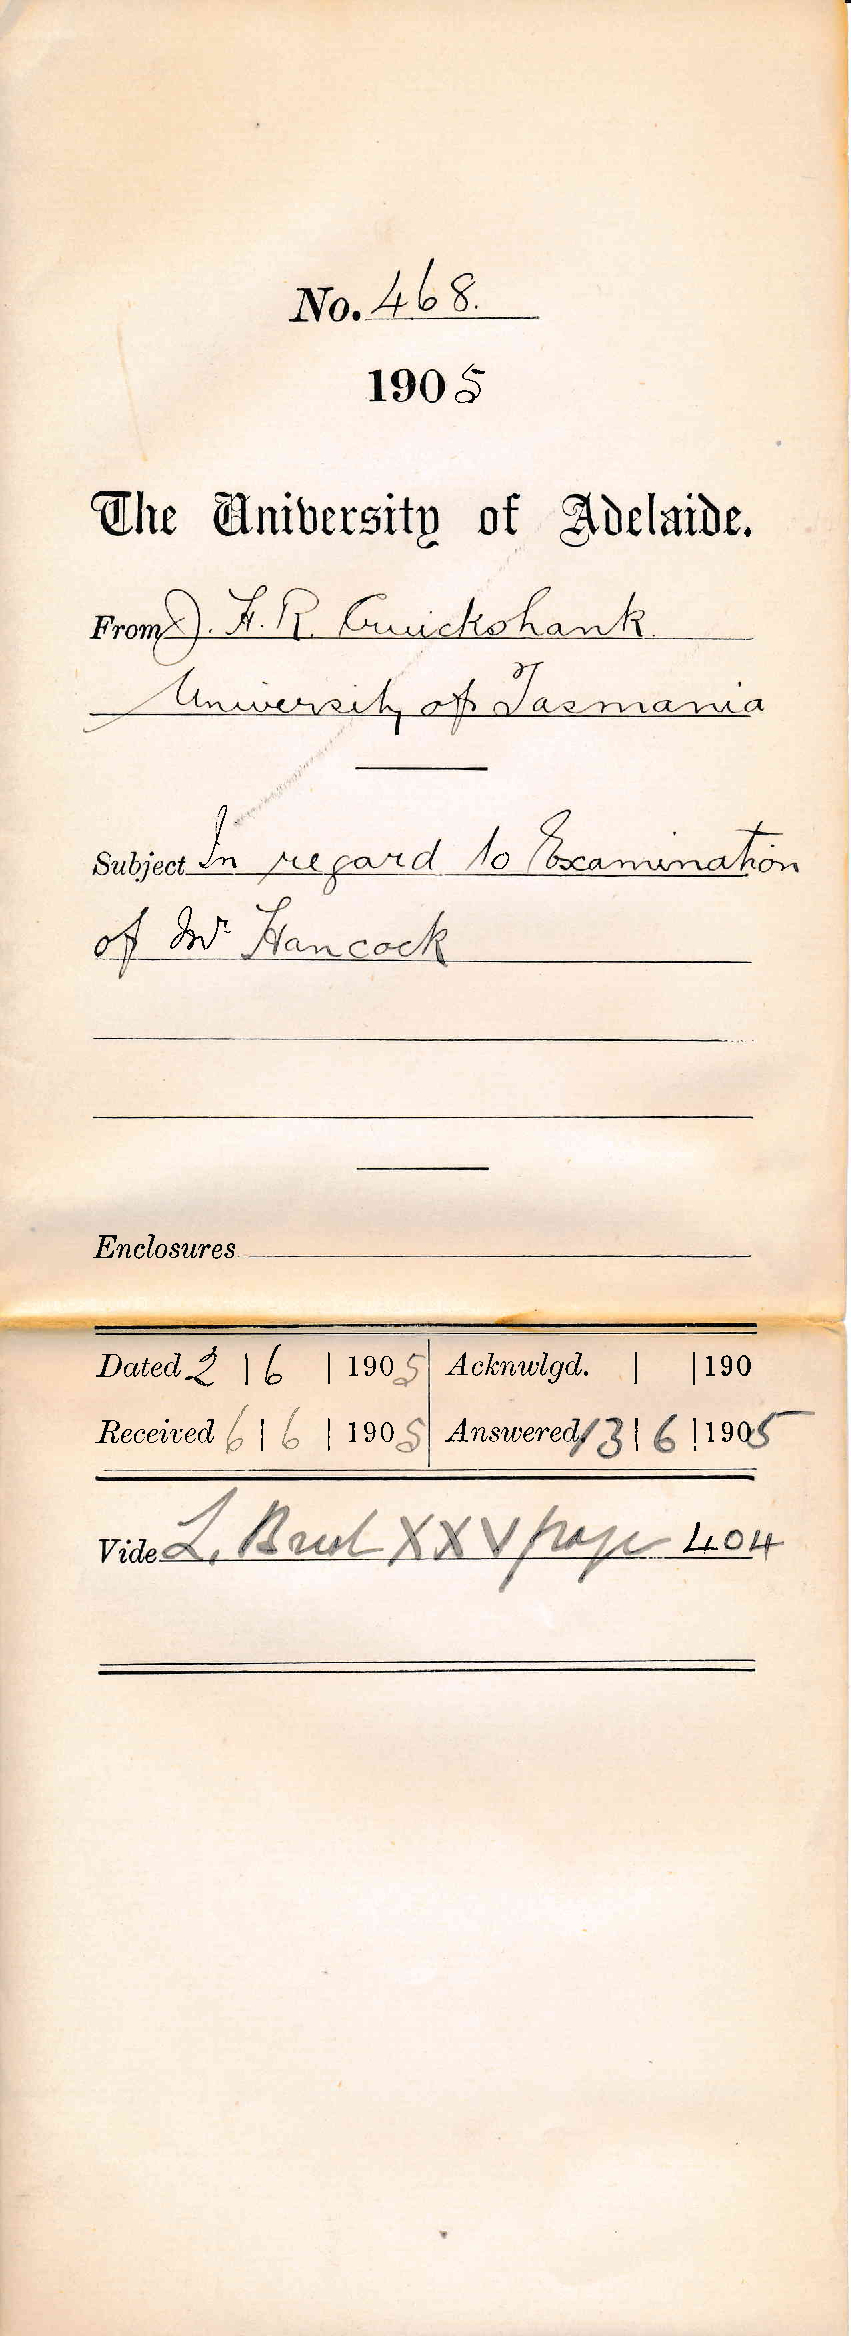 No. 468.
1905
The University of Adelaide.
From J. H. R. Cruickshank
University of Tasmania
Subject In regard to Examination
of Mr Hancock
Enclosures
Dated 2 | 6 | 1905 Acknwlgd. | | 190
Received 6 | 6 | 1905 Answered 13 | 6 | 1905
Vide L. XXV page 404